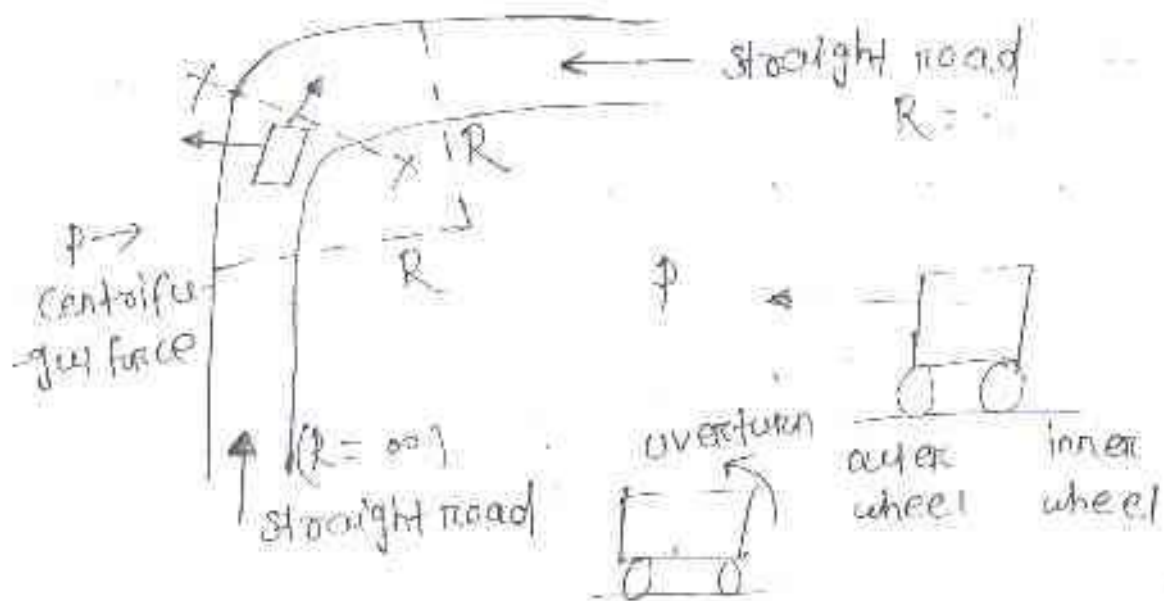 straight road
R =
X
X
R
R
P →
centrifu-
-gul force
P
(R = ∞)
straight road
overturn
outer
wheel
inner
wheel